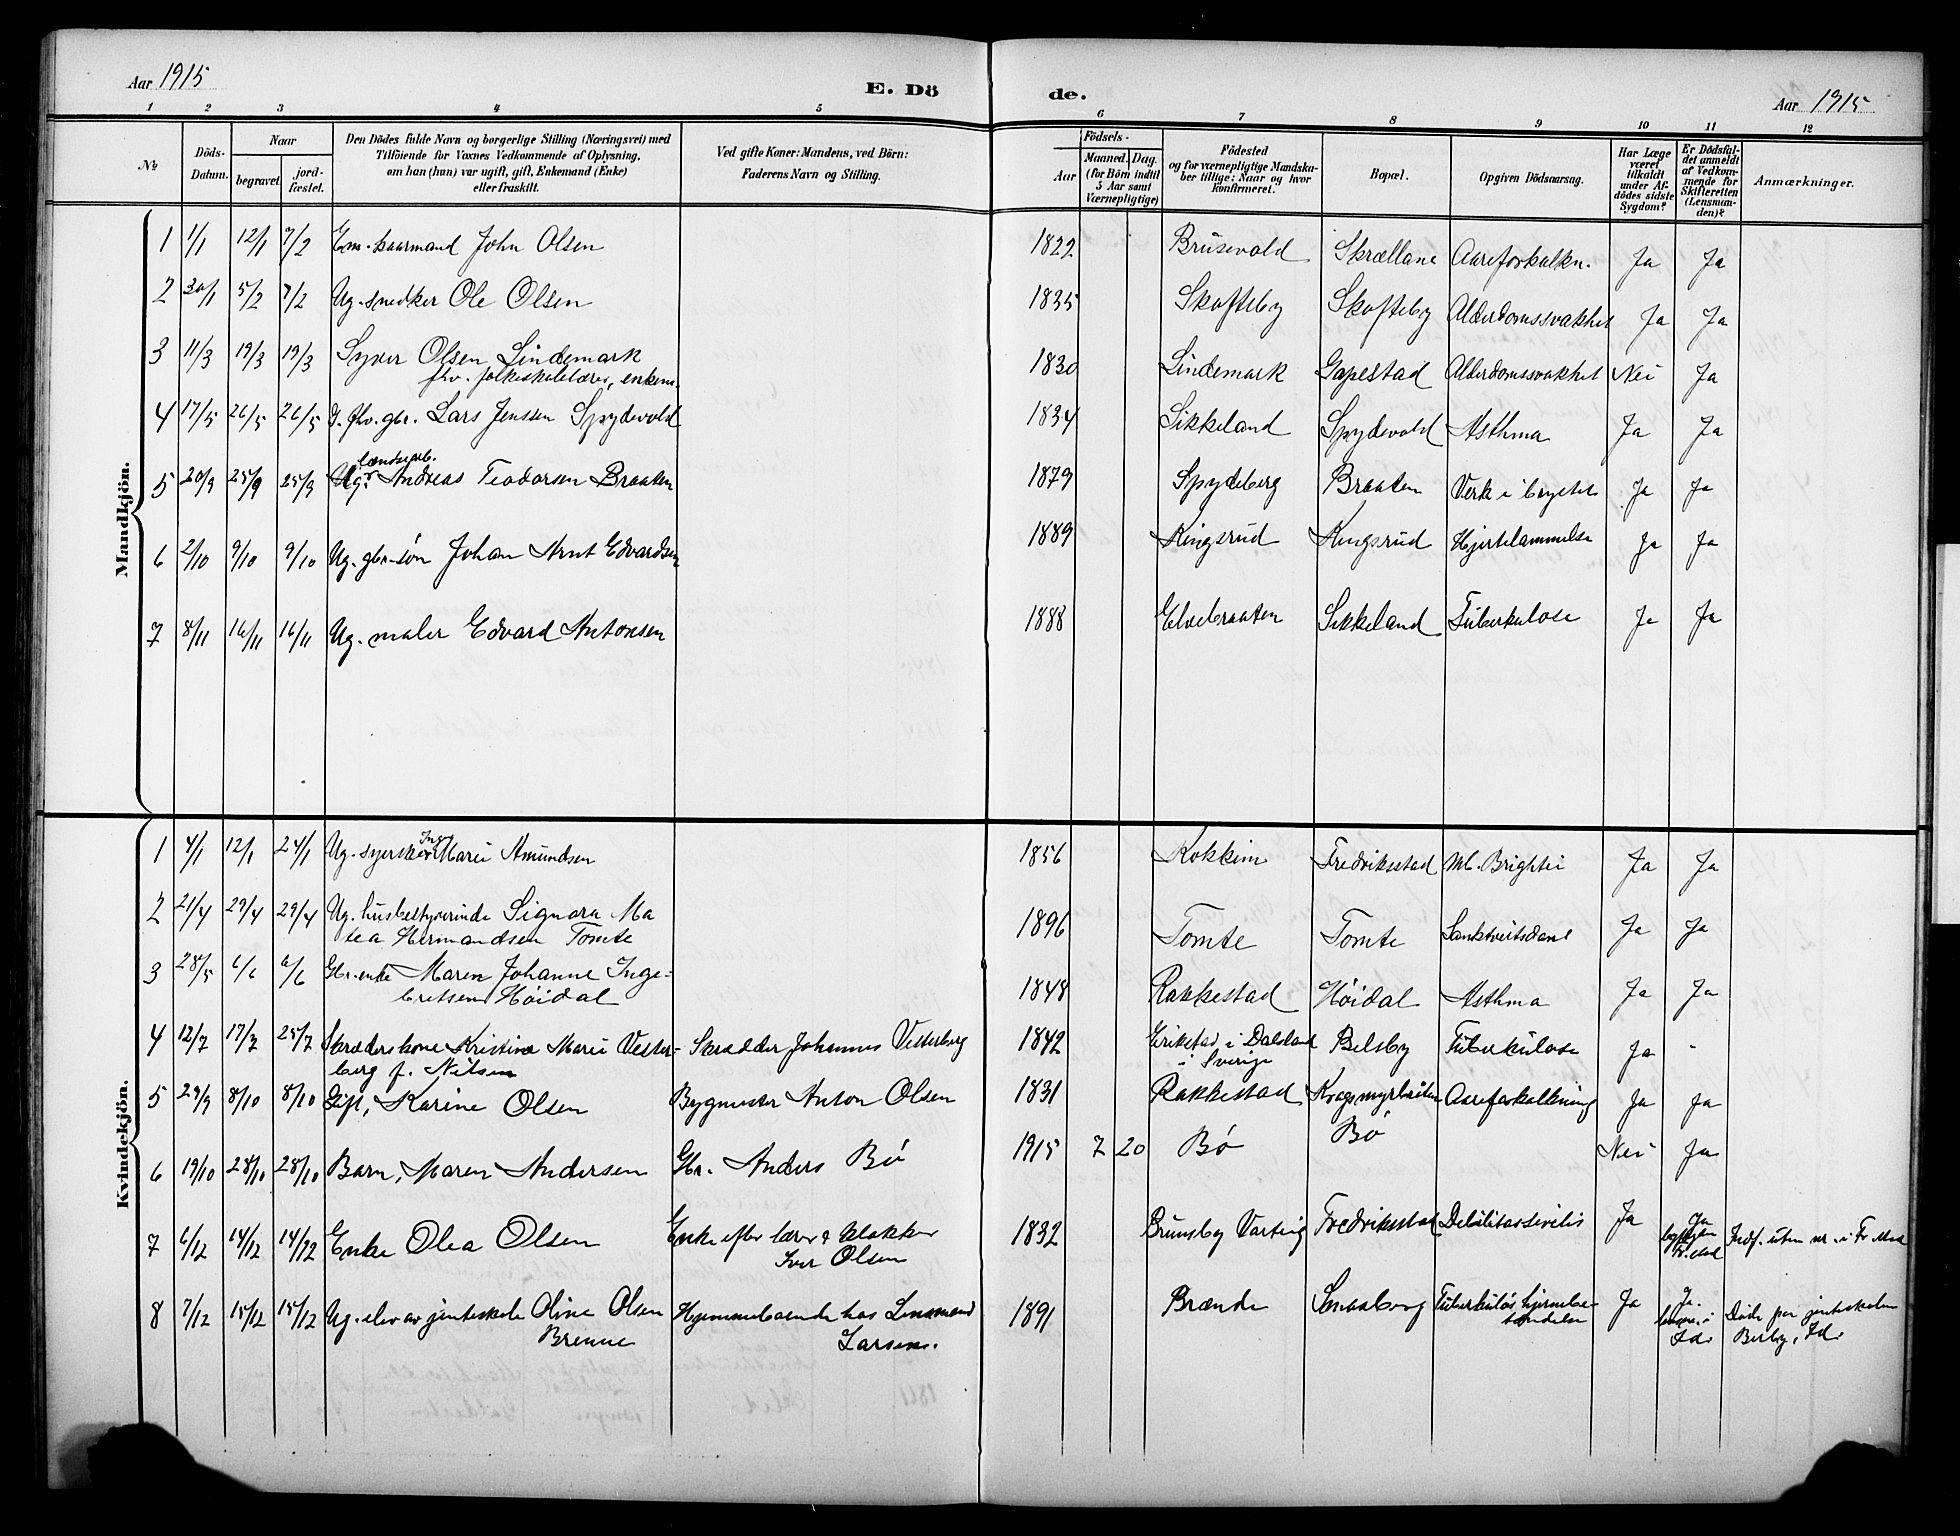 Aar 1915 E. Dö de. Aar 1915
1 2 3 4 5 6 7 8 9 10 11 12
No
Döds-Datum.
Naar
begravet.
jord-fæstet.
Den Dödes fulde Navn og borgerlige Stilling (Næringsvei) med
Tilföiende for Voxnes Vedkommende af Oplysning,
om han (hun) var ugift, gift, Enkemand (Enke)
eller fraskilt.
Ved gifte Koner: Mandens, ved Börn:
Faderens Navn og Stilling.
Födsels-
Aar
Maaned. Dag.
(for Börn indtil
5 Aar samt
Værnepligtige)
Födested
og for værnepligtige Mandska-
ber tillige: Naar og hvor
konfirmeret.
Bopæl.
Opgiven Dödsaarsag.
Har Læge
været
tilkaldt
under Af-
dödes sidste
Sygdom?
Er Dödsfal-
det anmeldt
af Vedkom-
mende for
Skifteretten
(Lensman-
den)?
Anmærkninger.
Mandkjön.
1 1/1 12/1 7/2 Em. kaarmand John Olsen 1822 Brusevold Skrællane Aareforkalkn. Ja Ja
2 30/1 5/2 7/2 Ug. snedker Ole Olsen 1835 Skofteby Skofteby Alderdomssvakhet Ja Ja
3 11/3 19/3 19/3 Syver Olsen Lindemark 1830 Lindemark Gapestad Alderdomssvakhet Nei Ja
fhv. folkeskolelærer, enkem.
4 17/5 26/5 26/5 G. fhv. gbr. Lars Jenssen Spydevold 1834 Sikkeland Spydevold Asthma Ja Ja
5 20/9 25/9 25/9 Ug. Andreas Teodorsen Braaten 1879 Spydeberg Braaten Verk i brystet Ja Ja
6 2/10 9/10 9/10 Ug. gbr.søn Johan Arnt Edvardsen 1889 Kingsrud Kingsrud Hjertelammelse Ja Ja
7 8/11 16/11 16/11 Ug. maler Edvard Antonsen 1888 Elvebraaten Sikkeland Tuberkulose Ja Ja
Kvindekjön.
1 4/1 12/1 24/1 Ug. syerske Marie Amundsen 1856 Kokkim Fredriksstad Mb. Brightii Ja Ja
2 21/4 29/4 29/4 Ug. husbestyrerinde Signora Ma 1896 Tomte Tomte Sanktveitsdans Ja Ja
tea Hermandsen Tomte
3 28/5 6/6 6/6 Gbr. enke Maren Johanne Inge- 1848 Rakkestad Höidal Asthma Ja Ja
bretsen Höidal
4 12/7 17/7 25/7 Skrædderskone Kristine Marie Vester- Skrædder Johannes Vesterberg 1842 Erikstad i Dalsland Belsby Tuberkulose Ja -
berg f. Nilsen i Sverige
5 29/9 8/10 8/10 Gift, Karine Olsen Bygmester Anton Olsen 1831 Rakkestad Kragsmyrbraten Aareforkalkning Ja Ja
6 19/10 28/10 28/10 Barn, Maren Andersen Gbr. Anders Bö 1915 7 20 Bö Bö Nei Ja
7 6/12 14/12 14/12 Enke Olea Olsen Enke efter lærer & klokker 1832 Brunsby Varteig Fredriksstad Debilitas senilis Ja Ja
Iver Olsen byfogden Fr.stad Indf. uten nr. i Fr.stad
8 7/12 15/12 15/12 Ug. elev av jenteskole Oline Olsen Hjemmeboende hos Lensmand 1891 Brænde Smaaberg Tuberkuløs hjernebe- Ja Ja. Døde paa jenteskolen
Brenne Larsen. tændelse lensm. i Idd. Berby, Idd.